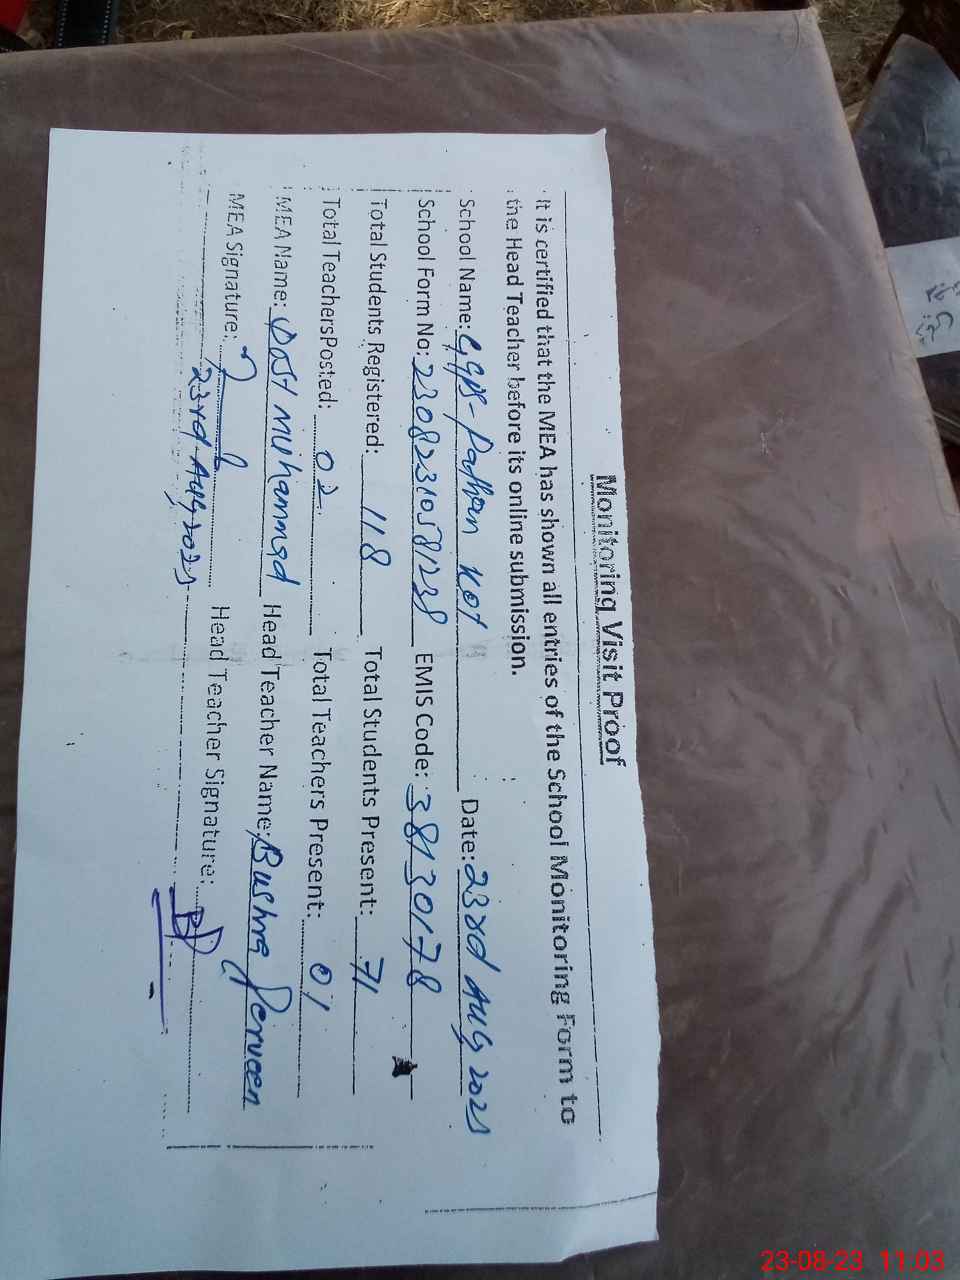 Monitoring Visit Proof
It is certified that the MEA has shown all entries of the School Monitoring Form to
the Head Teacher before its online submission.
School Name: GGPS-Pathan Kot Date: 23rd Aug 2023
School Form No: 23082310581238 EMIS Code: 38130178
Total Students Registered: 118 Total Students Present: 71
Total TeachersPosted: 02 Total Teachers Present: 01
MEA Name: Dost Muhammad Head Teacher Name: Bushra Perveen
MEA Signature: Head Teacher Signature:
23rd Aug, 2023
23-08-23 11:03